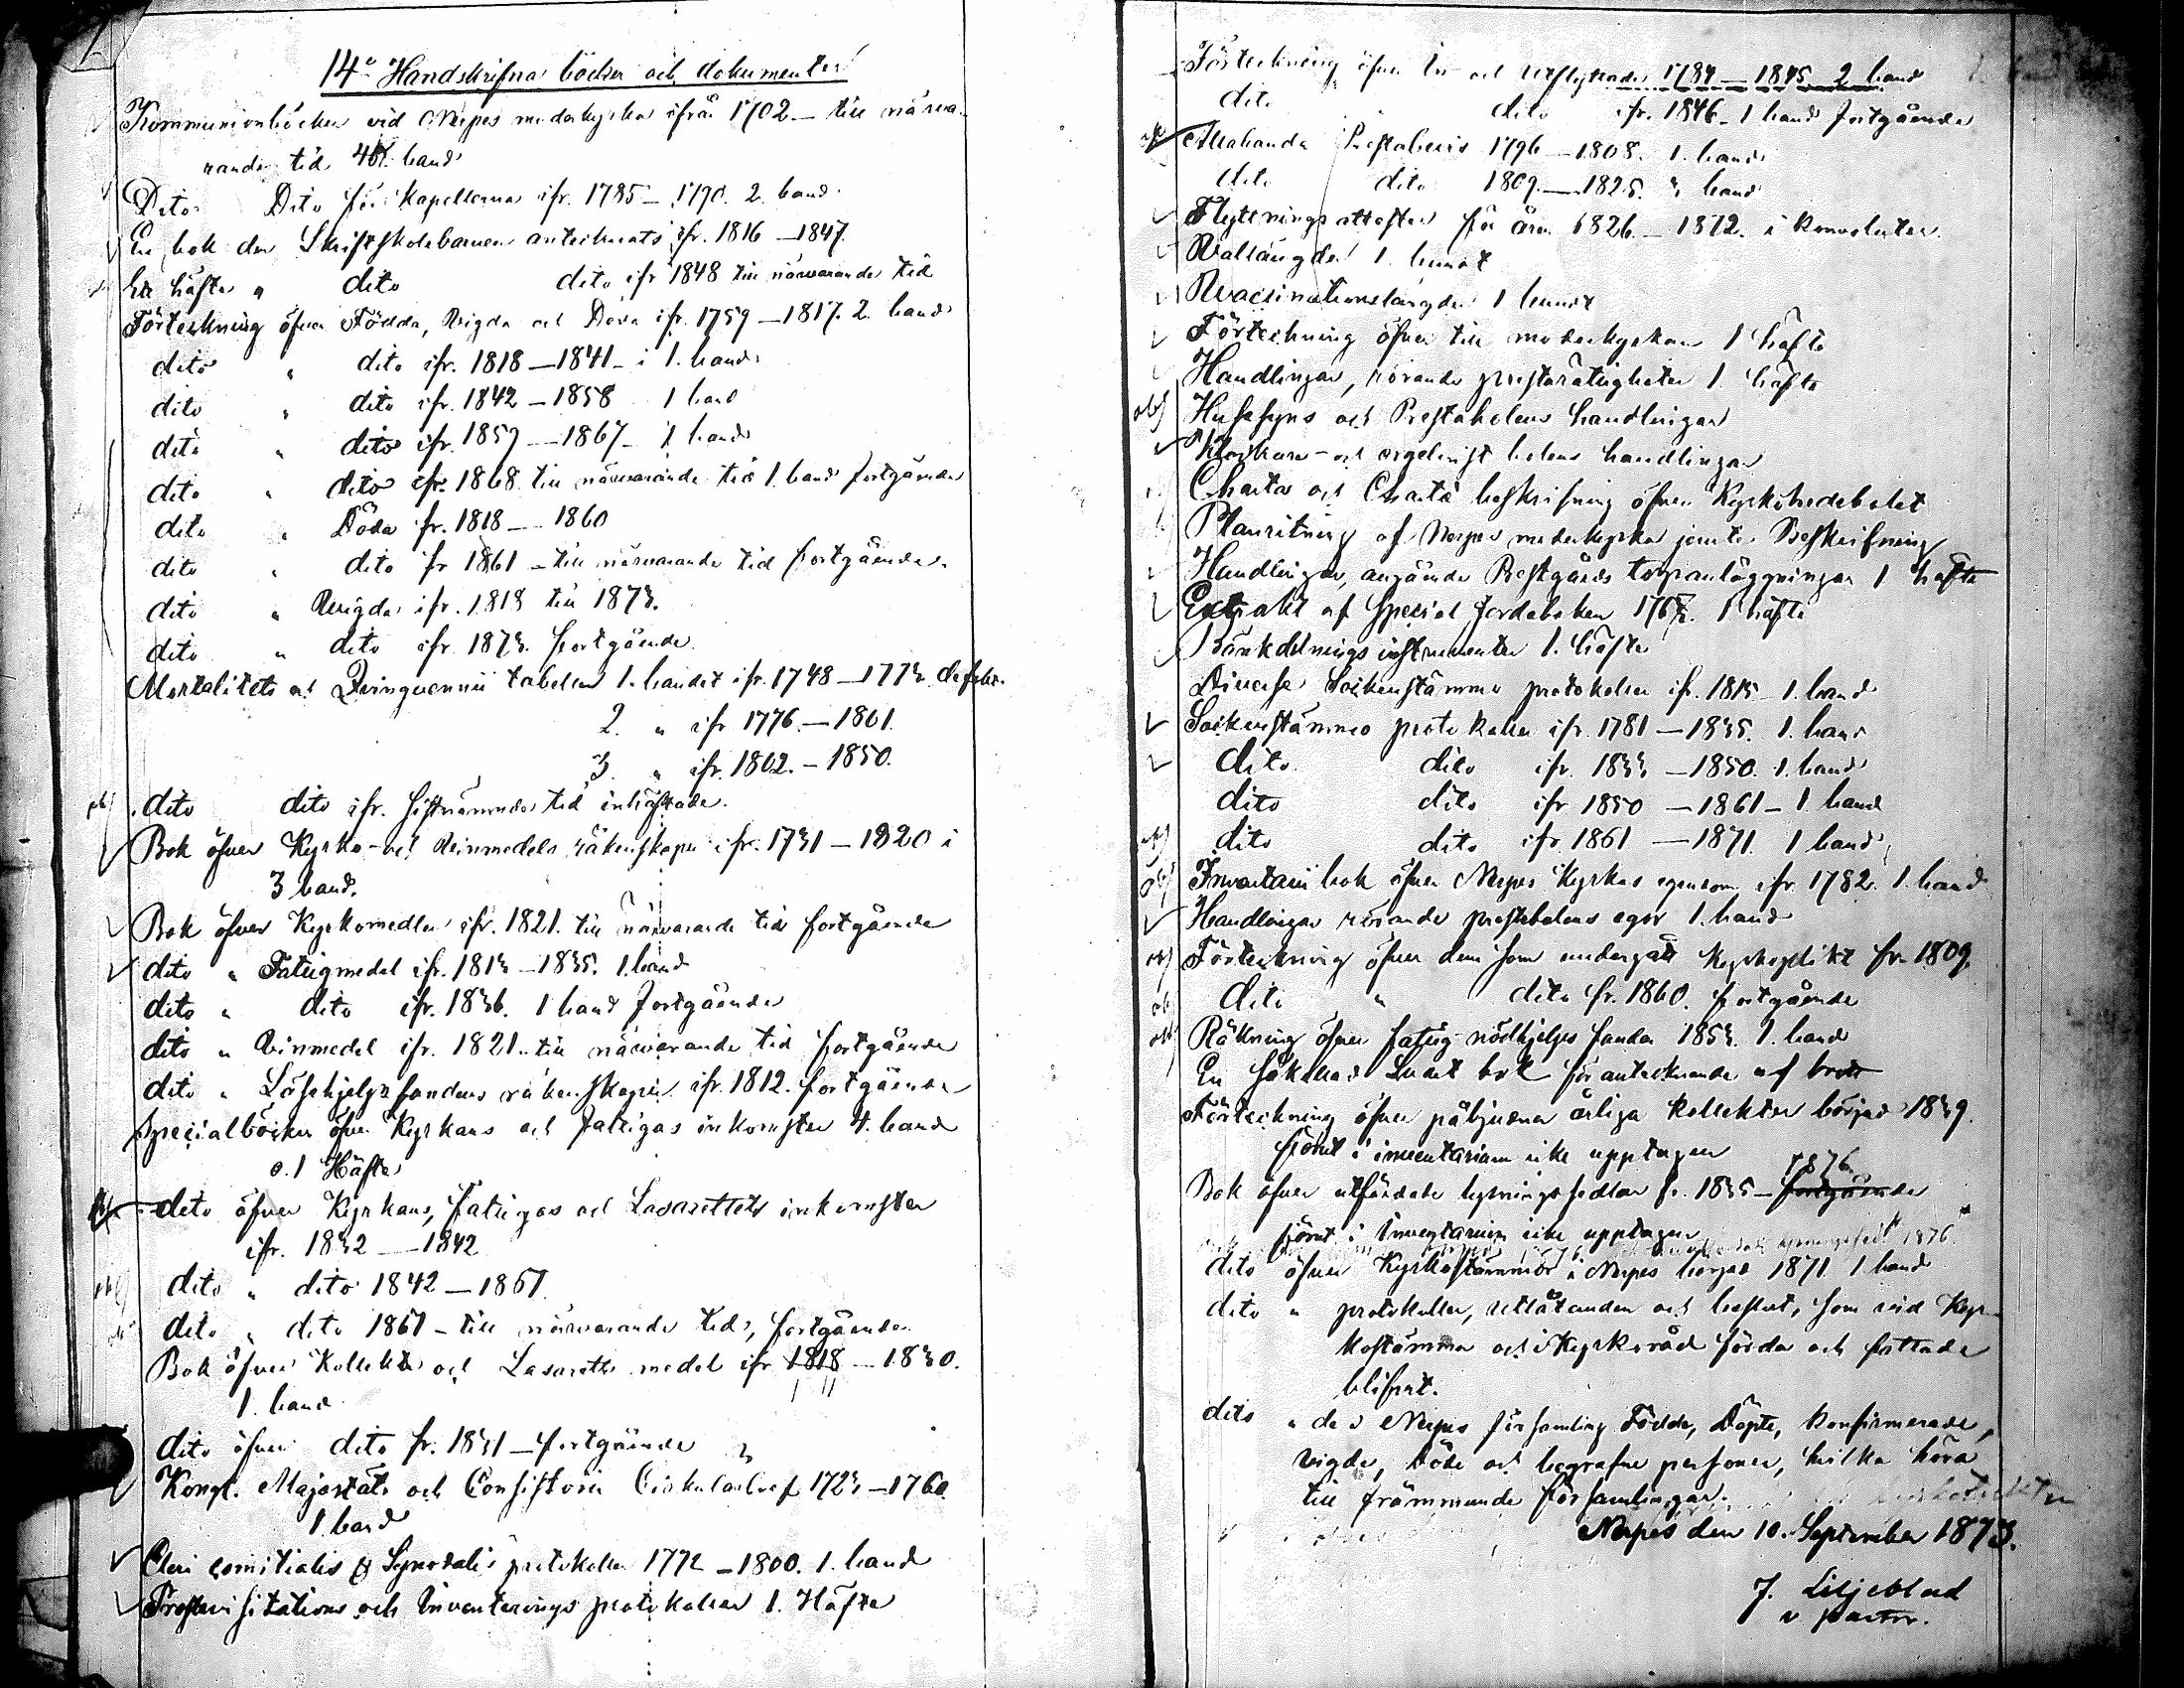 14o Handskrifna böcker och dokumenter
Kommunionböcker vid Nerpes moderkyrka ifrån 1702 – till närva-
rande tid 46 band
Dito Dito för Kapellerna ifr. 1785 – 1790. 2. band
En bok der Skriftskolebarnen antecknats ifr. 1816 – 1847.
Ett häfte " dito dito ifr 1848 till närvarande tid
Förteckning öfver Födda, Vigda och Döda ifr. 1759 – 1817. 2. band
dito " dito ifr. 1818 – 1841 – i 1. band
dito " dito ifr. 1842 – 1858 1 band
dito " dito ifr. 1859 – 1867 – 1 band
dito " dito ifr. 1868 till närvarande tid 1. band fortgående
dito " Döda fr. 1818 – 1860
dito " dito fr 1861 – till närvarande tid fortgående.
dito " Vigda ifr. 1818 till 1873.
dito " dito ifr. 1873. fortgående
Mortalitets och Qvinquennii tabeller 1. bandet ifr. 1748 – 1773 defekt.
2. " ifr 1776. – 1801.
3. " ifr. 1802. – 1850.
obs dito dito ifr. sistnämnde tid inhäftade.
Bok öfver Kyrko- och Vinmedels räkenskaper ifr. 1731 – 1820 i
3 band.
Bok öfver Kyrkomedlen ifr. 1821. till närvarande tid fortgående
dito " Fattigmedel ifr. 1813 – 1835. 1. band
dito " dito ifr. 1836. 1 band fortgående
dito " Vinmedel ifr. 1821. till närvarande tid fortgående
dito " Lösehjelps fondens räkenskaper ifr. 1812. fortgående
Specialböcker öfver Kyrkans och fattigas inkomster 4. band
o. 1 Häfte
dito öfver Kyrkans, fattigas och Lasarettets inkomster
ifr. 1832 – 1842
obs dito " dito 1842 – 1867
dito " dito 1867 – till närvarande tid, fortgående
Bok öfver Kollekt och Lasaretts medel ifr 1818 – 1830.
11
1. band
dito öfver dito fr. 1831 – fortgående
Kongl. Majestäts och Consistorii Cirkulärbref 1723 – 1760
1. band
Cleri comitialis & Synodalis protokoller 1772 – 1800. 1. band
Prostvisitations och Inventerings protokoller 1. Häfte
Förteckning öfver In- och Utflyttade 1784 – 1845 2 band
dito dito ifr. 1846 – 1 band fortgående
Allahanda Prestabevis 1796 – 1808. 1. band
dito dito 1809 – 1825. " band
Flyttningsattester för åren 1826 – 1872. i konvoluter.
Vallängder 1. bundt
Vaccinationslängder 1 bundt
Förteckning öfver till moderkyrkan 1 häfte
Handlingar, rörande prestarättigheter 1. häfte
obs Hussyns och Prestabolens handlingar
Klockare- och orgelnist bolens handlingar
Charta och Charte beskrifning öfver Kyrkoherdebolet
Planritning af Nerpes moderkyrka jemte Beskrifning
Handlingar, angående Prestgårds torpanläggningar 1 häfte
Extrakt af Special Jordeboken 1767. 1 häfte
Bänkdelnings instrumenter 1. häfte
Diverse Sockenstämmo protokoller ifr. 1815 – 1. band
Sockenstämmo protokoller ifr. 1781 – 1835. 1. band
dito. dito ifr. 1833 – 1850. 1. band
dito dito ifr 1850 – 1861 – 1. band
obs dito dito ifr. 1861 – 1871. 1 band
obs Inventarii bok öfver Nerpes Kyrkas egendom ifr. 1782. 1. band
Handlingar rörande prestabolens egor 1. band
obs Förteckning öfver dem som undergått kyrkoplikt fr. 1809.
ob dito " dito fr. 1860. fortgående
obs Räkning öfver fattig nödhjelps fonden 1853. 1. band
En så kallad Svart bok för antecknande af brott
Förteckning öfver påbjudna årliga kollekter börjad 1839.
förut i inventarium icke upptagen
1876
Bok öfver utfärdade lysningssedlar fr. 1835 – fortgående
förut i Inventarium icke upptagen
dito öfver Kyrkostämmor i Nerpes börjad 1871 1. band
dito " protokoller, utlåtanden och beslut, som vid Kyr-
kostämma och i Kyrkoråd förda och fattade
blifvit.
dito " de i Nerpes församling Födda, Döpte, konfirmerade,
vigde, döde och begrafne personer, hvilka höra
till främmande församlingar.
Nerpes den 10. September 1873.
J. Liljeblad
v pastor.